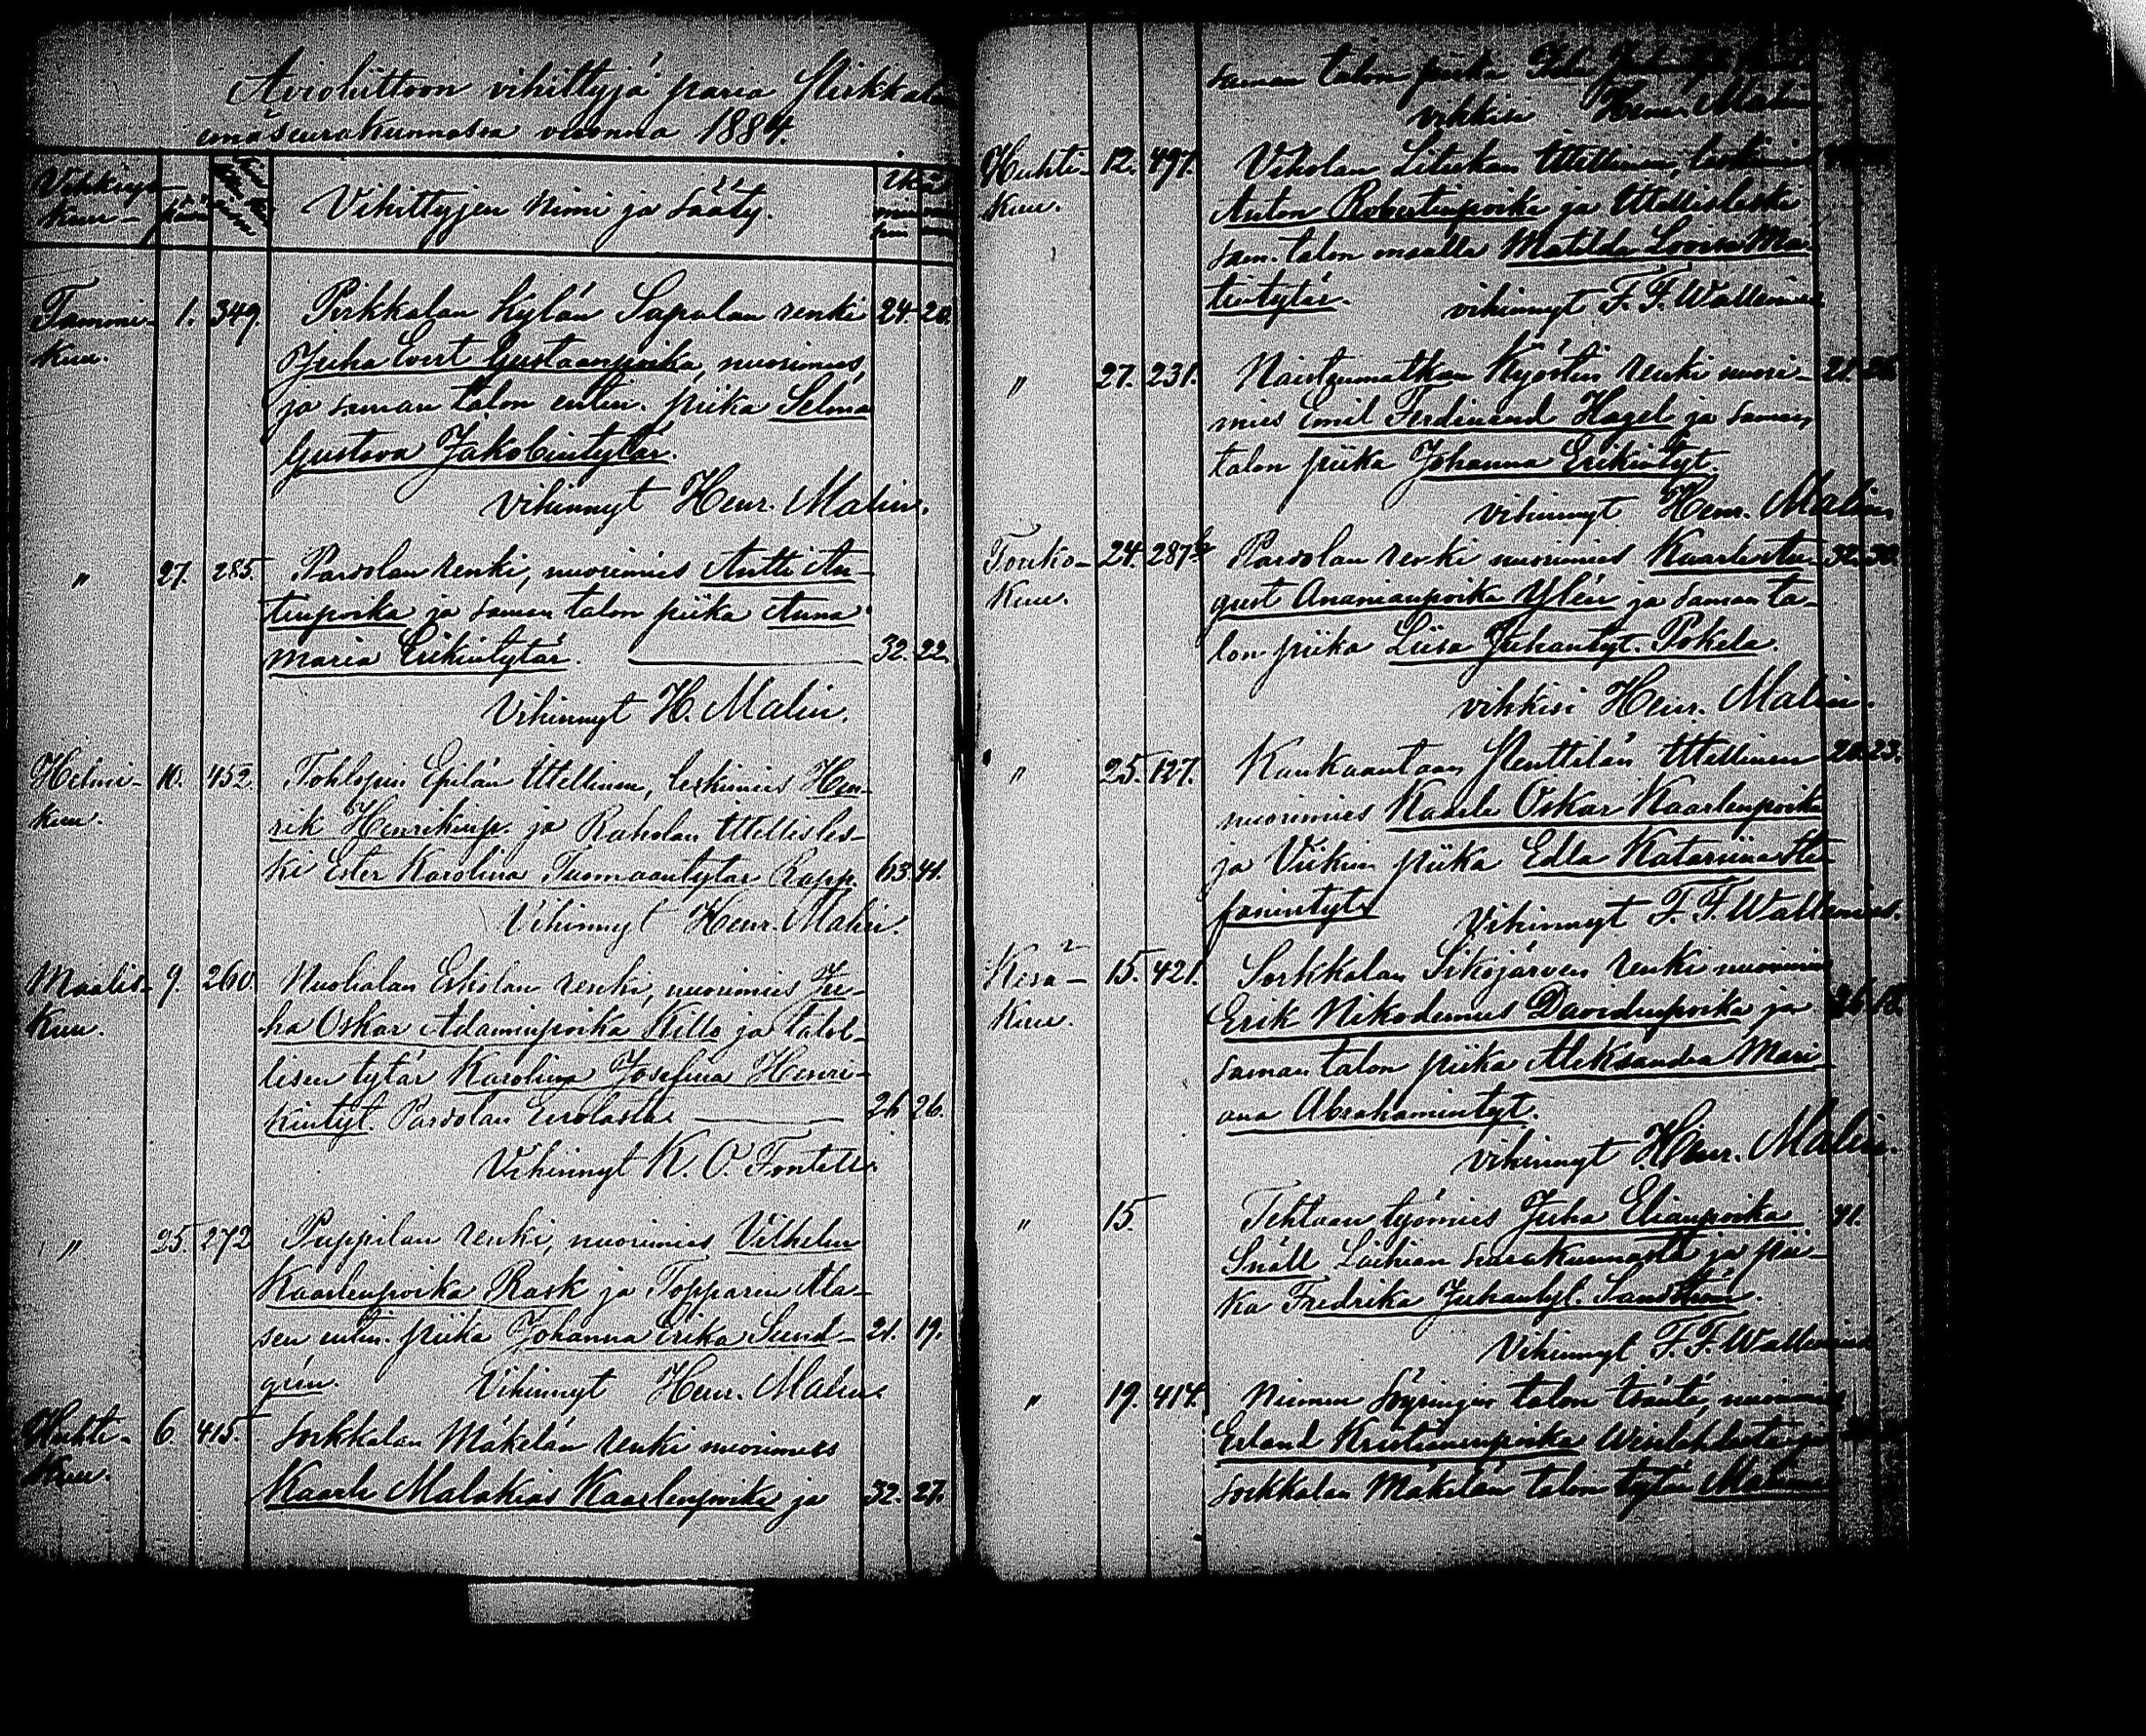 Avioliittoon vihittyjä paria Pirkkalan
emäseurakunnassa vuonna 1884.
Vihkiys
kuu- päivä
Vihittyjen nimi ja sääty.
ikä
Tammi- 1. 349. Pirkkalan Kylän Sapalan renki 24. 20.
kuu. Juha Evert Gustaanpoika, nuorimies,
ja saman talon entin. piika Selma
Gustava Jakobintytär.
Vihinnyt Henr. Malin.
" 27. 285. Partolan renki, nuorimies Antti An-
tinpoika ja saman talon piika Anna
Maria Erikintytär. 32. 22.
Vihinnyt H. Malin.
Helmi- 10. 452. Tohlopin Epilän Itellinen, leskimies Hen-
kuu. rik Henrikinp. ja Raholan Itellisles-
ki Ester Karolina Tuomaantytar Rapp. 63. 41.
Vihinnyt Henr. Malin.
Maalis- 9. 260. Nuolialan Eskolan renki, nuorimies Ju-
kuu. ha Oskar Adaminpoika Killo ja talol-
lisen tytär Karolina Josefina Henri-
kintyt. Partolan Eerolasta 26. 26.
Vihinnyt K. O. Fontell.
" 25. 272 Pappilan renki, nuorimies Vilhelm
Kaarlenpoika Rask ja Topparin Ala-
sen entin. piika Johanna Erika Sund- 21. 19.
grén. Vihinnyt Henr. Malin.
Huhti- 6. 415. Sorkkalan Mäkelän renki nuorimies
kuu. Kaarle Malakias Kaarlenpoika ja 32. 27.
saman talon piika
vihkisi Henr. Malin
Huhti- 12. 497. Viholan Liuskan Itellinen, leskimies
kuu. Anton Robertinpoika ja Itellisleski
sam. talon maalla Matilda Lovisa Ma-
tintytär. vihinnyt F. F. Wallenius
" 27. 231. Naistenmatkan Kyöstin renki nuori- 21. 26.
mies Emil Ferdinand Hagel ja saman
talon piika Johanna Erikintyt.
vihinnyt Henr. Malin.
Touko- 24. 287½ Partolan renki nuorimies Kaarle Au- 32. 30.
kuu. gust Ananianpoika Ylén ja saman ta-
lon piika Liisa Juhantyt. Pokela.
vihkisi Henr. Malin.
" 25. 127. Kankaantaan Penttilän Itellinen 23.
nuorimies Kaarle Oskar Kaarlenpoika
ja Viikin piika Edla Katariina Ste-
fanintyt. Vihinnyt F. F. Wallenius.
Kesä- 15. 421. Sorkkalan Sikojärven renki nuorimies
kuu. Erik Nikodemus Davidinpoika ja
saman talon piika Aleksandra Mari-
ana Abrahamintyt.
vihinnyt Henr. Malin.
" 15. Tehtaan työmies Juha Elianpoika 41.
Snäll Laihian seurakunnasta ja pii-
ka Fredrika Juhantyt. Sandström.
Vihinnyt F. F. Wallenius
" 19. 414. Niemen talon nuorimies
Erland Kristianinpoika Vesilahdesta ja
Sorkkalan Mäkelän talon tytär